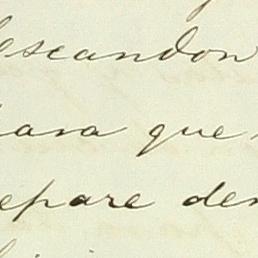 escandon
para que
epare den